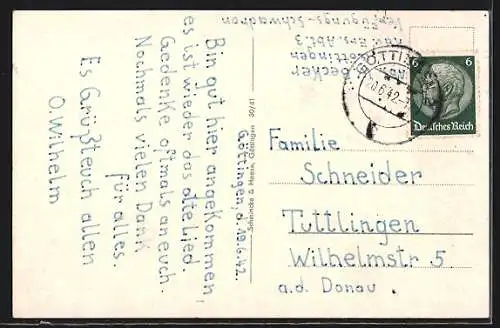 Göttingen, d. 19.6.42.
Bin gut hier angekommen,
es ist wieder das alte Lied.
Gedenke oftmals an euch.
Nochmals vielen Dank
für alles.
Es Grüßt euch allen
O. Wilhelm
Schneider & Heene, Göttingen 30/41
Becker
Göttingen
Kav. Ers. Abt. 3
Verfügungs-Schwadron
GÖTTINGEN
6 6
Deutsches Reich
Familie
Schneider
Tuttlingen
Wilhelmstr 5
a.d. Donau.